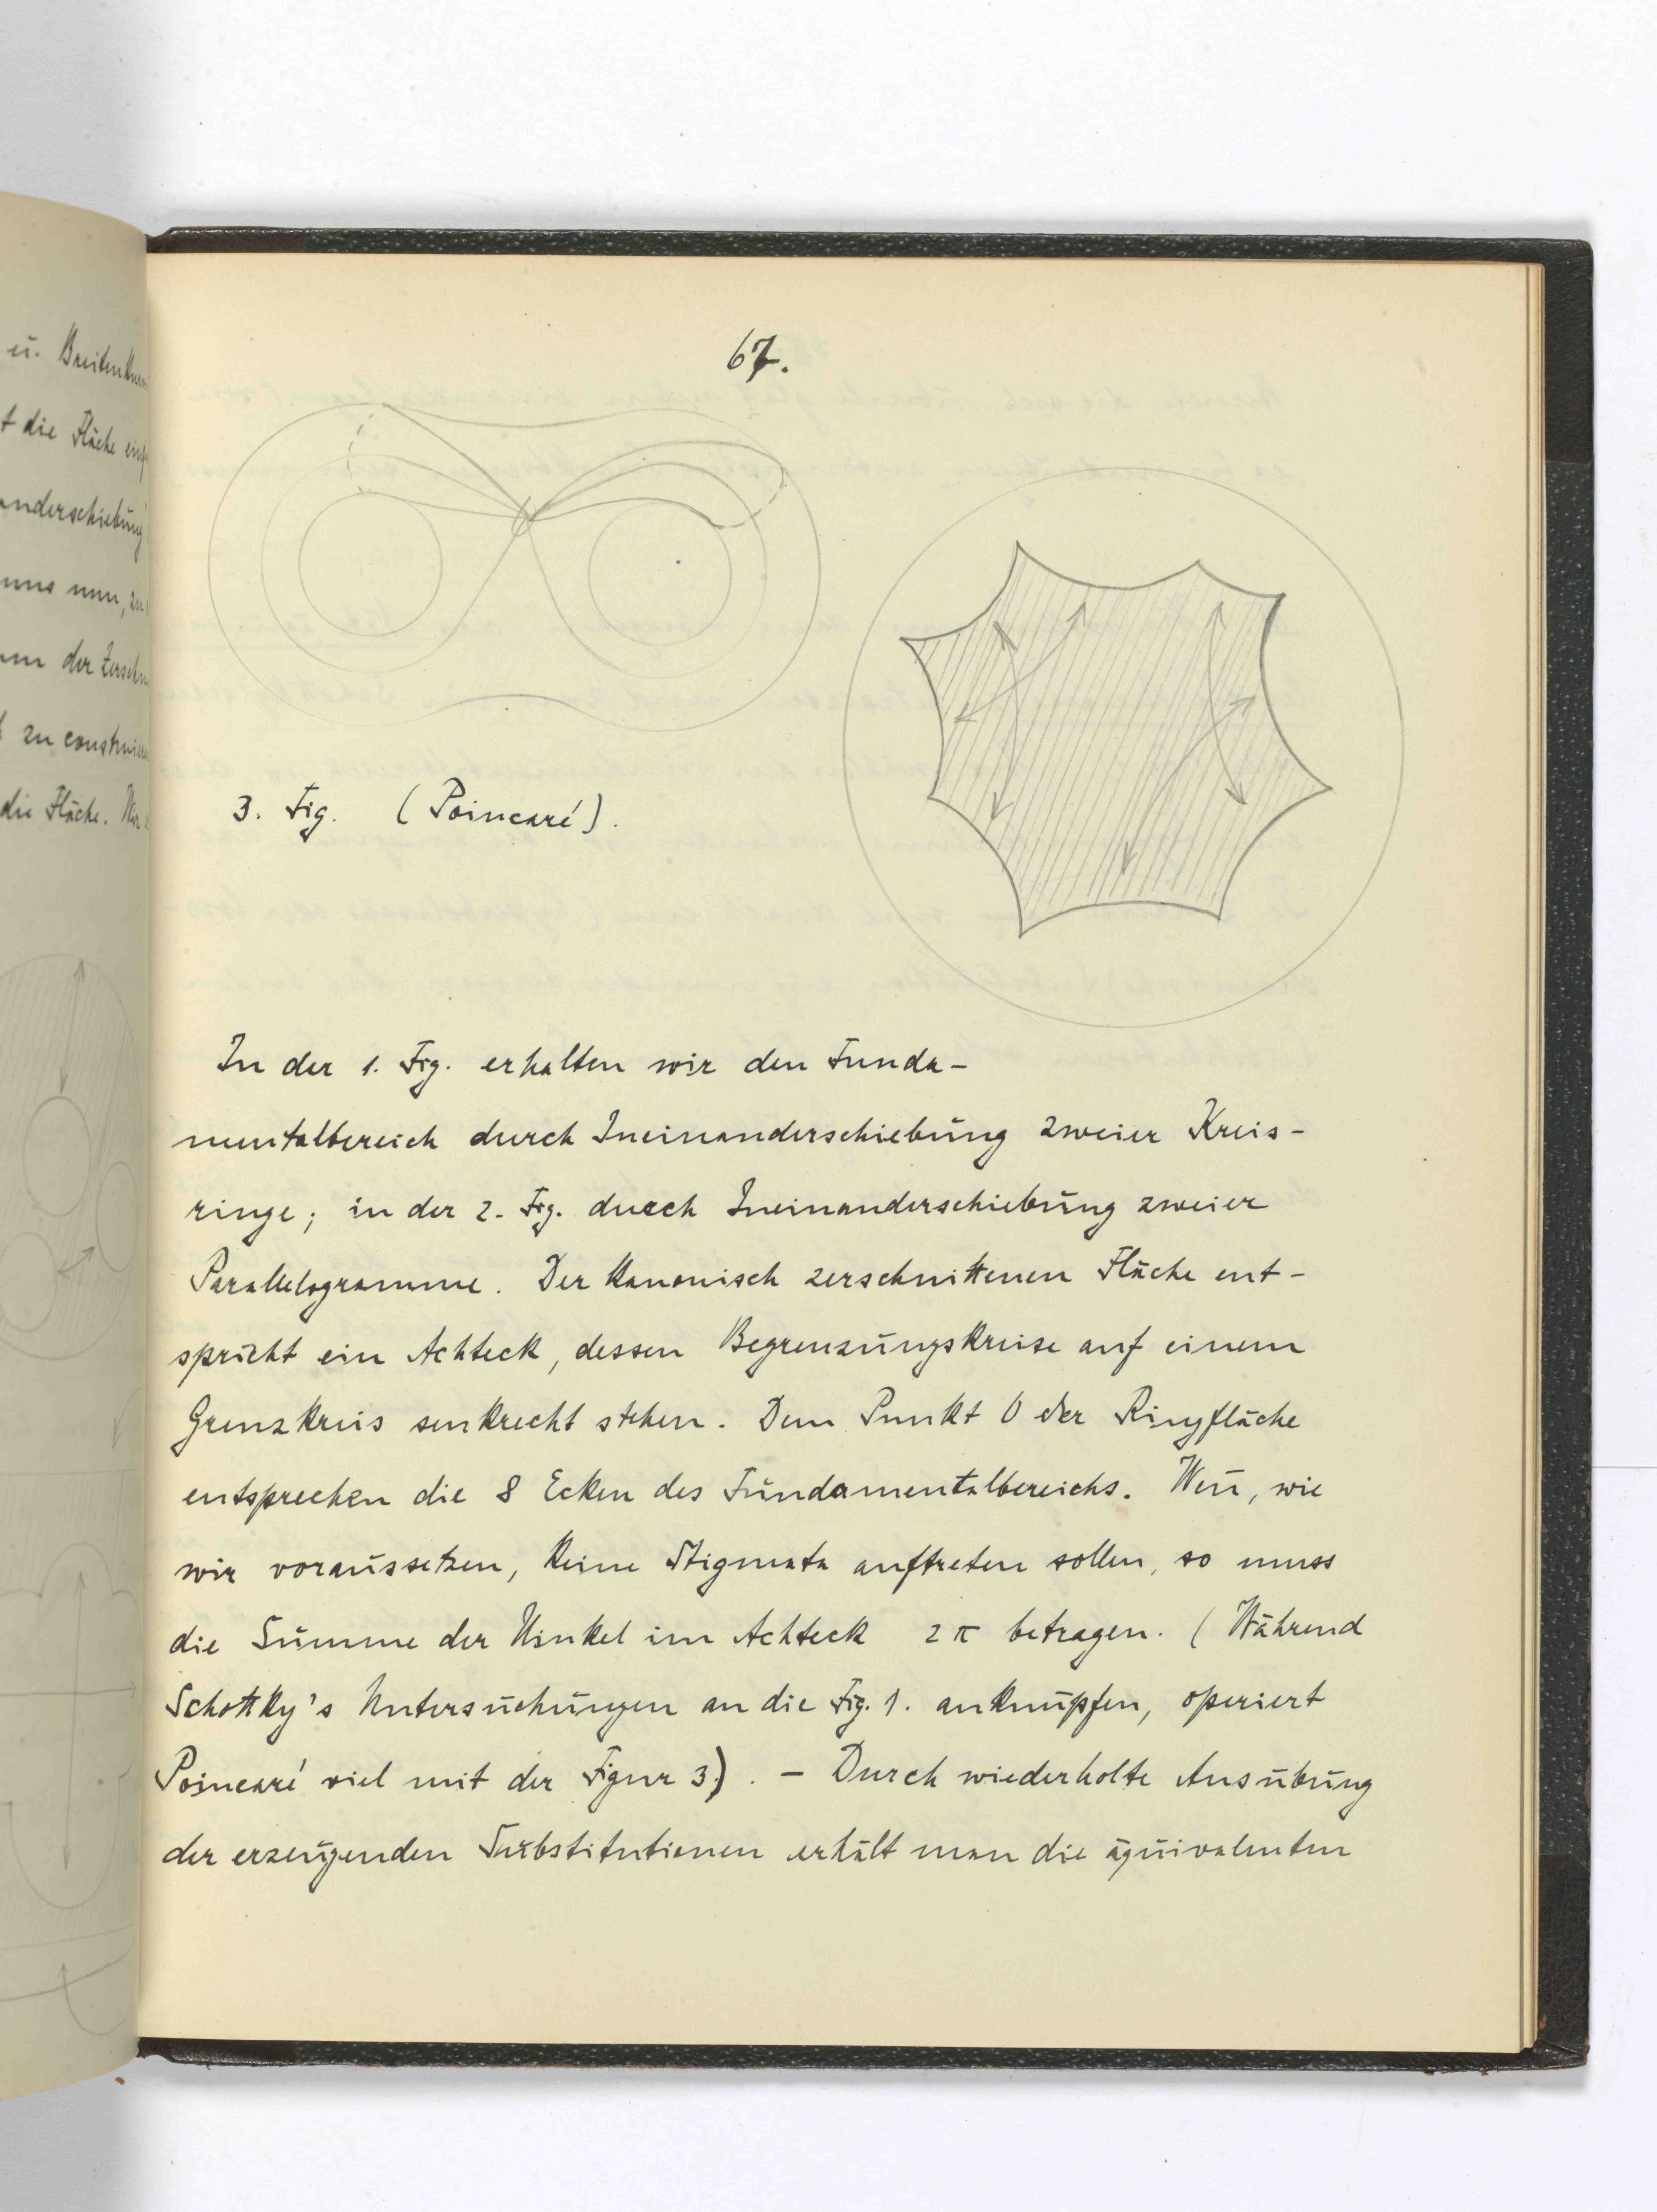 ü. Breitenkur
t die Fläche
anderschiebung
uns nun, zu
um der
zu construi
die Fläche. Wir
67.
3. Fig. (Poincaré).
In der 1. Fig. erhalten wir den Funda-
mentalbereich durch Ineinanderschiebung zweier Kreis-
ringe; in der 2. Fig. durch Ineinanderschiebung zweier
Parallelogramme. Der kanonisch zerschnittenen Fläche ent-
spricht ein Achteck, dessen Begrenzungskreise auf einem
Grenzkreis senkrecht stehen. Dem Punkt O der Ringfläche
entsprechen die 8 Ecken des Fundamentalbereichs. Weñ, wie
wir voraussetzen, keine Stigmata auftreten sollen, so muss
die Summe der Winkel im Achteck 2π betragen. (Während
Schottky's Untersuchungen an die Fig. 1. anknüpfen, operiert
Poincaré viel mit der Figur 3.). – Durch wiederholte Ausübung
der erzeugenden Substitutionen erhält man die äquivalenten